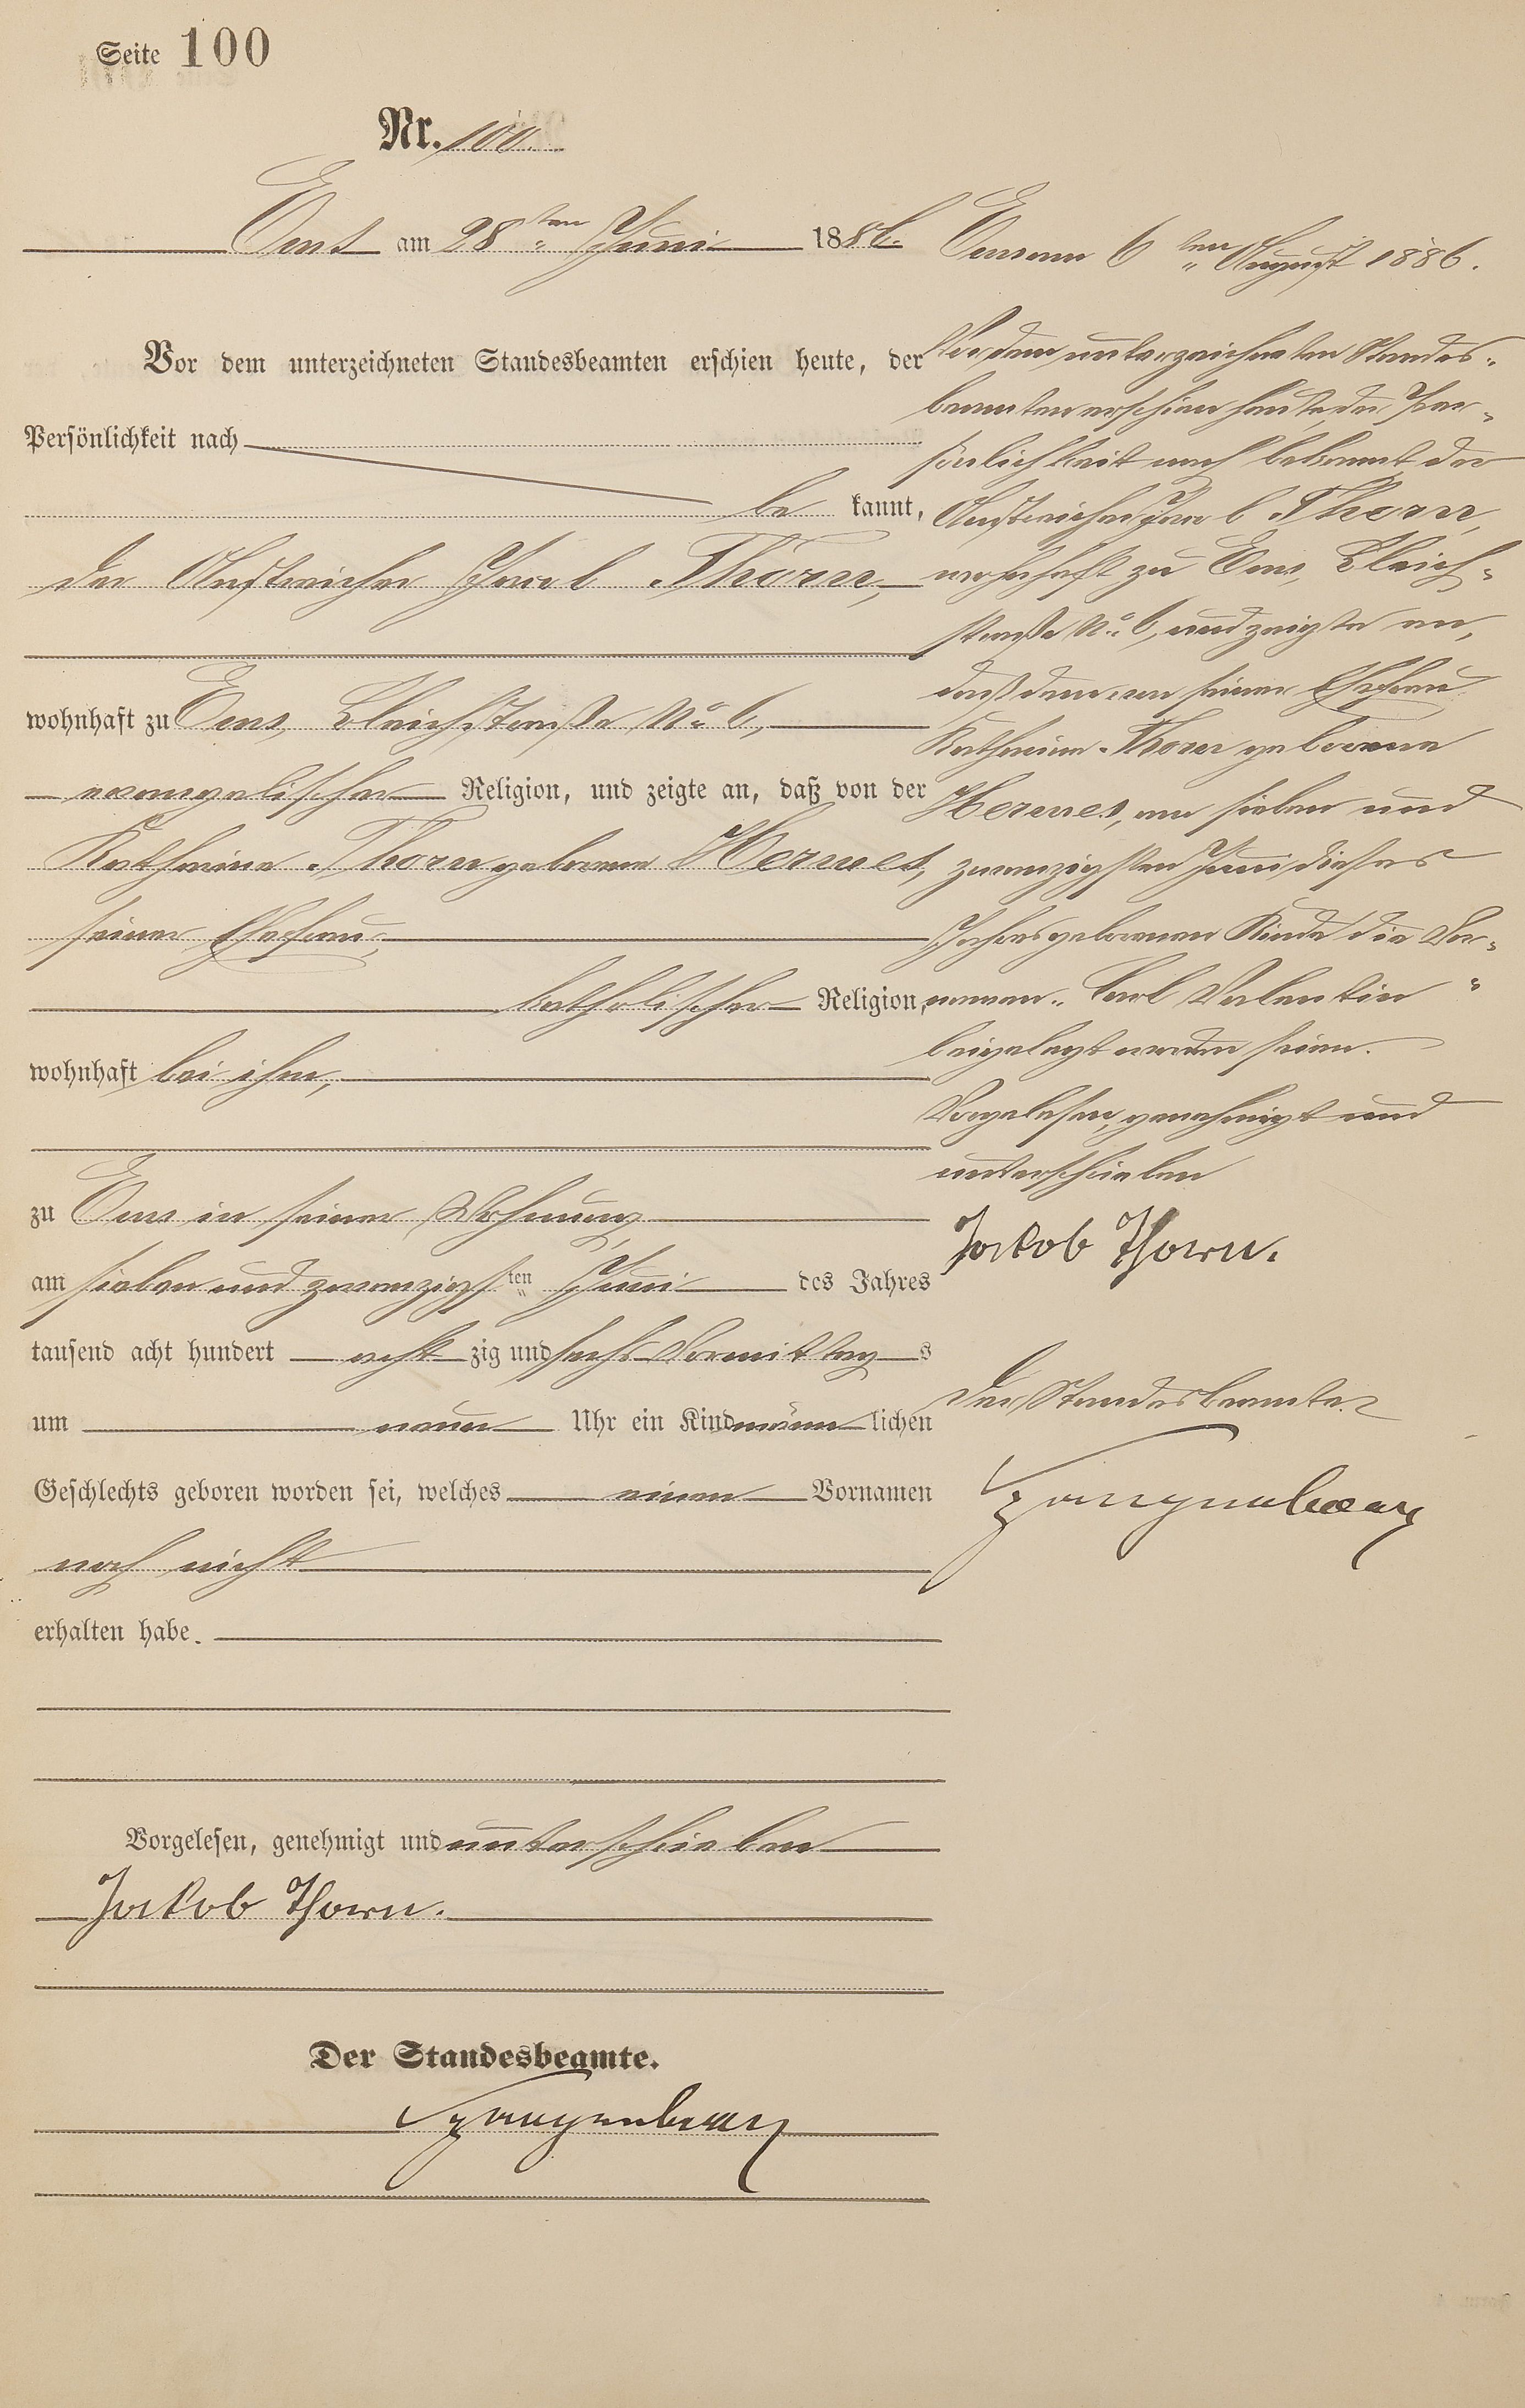 Seite 100
Nr. 100.
Ems am 28ten Juni 1886.
Vor dem unterzeichneten Standesbeamten erschien heute, der
Persönlichkeit nach
be kannt,
der Anstreicher Jacob Thorn,
wohnhaft zu Ems, Bleichstraße No 6,
evangelischer Religion, und zeigte an, daß von der
Katharina Thorn geborene Hermes,
seiner Ehefrau,
katholischer Religion,
wohnhaft bei ihm,
zu Ems in seiner Wohnung
am sieben und zwanzigsten Juni des Jahres
tausend acht hundert acht zig und sechs Vormittags
um neun Uhr ein Kind männlichen
Geschlechts geboren worden sei, welches einen Vornamen
noch nicht
erhalten habe.
Vorgelesen, genehmigt und unterschrieben
Jakob Thorn.
Der Standesbeamte.
Ems am 6ten August 1886.
Vor dem unterzeichneten Standes-
beamten erschien heute, der Per-
sönlichkeit nach bekannt, der
Anstreicher Jacob Thorn,
wohnhaft zu Ems, Bleich-
straße No 6, und zeigte an,
daß dem von seiner Ehefrau
Katharina Thorn geborene
Hermes, am sieben und
zwanzigsten Juni dieses
Jahres geborenen Kinde die Vor-
namen „Carl Valentin“
beigelegt worden seien.
Vorgelesen, genehmigt und
unterschrieben
Jakob Thorn.
Der Standesbeamte